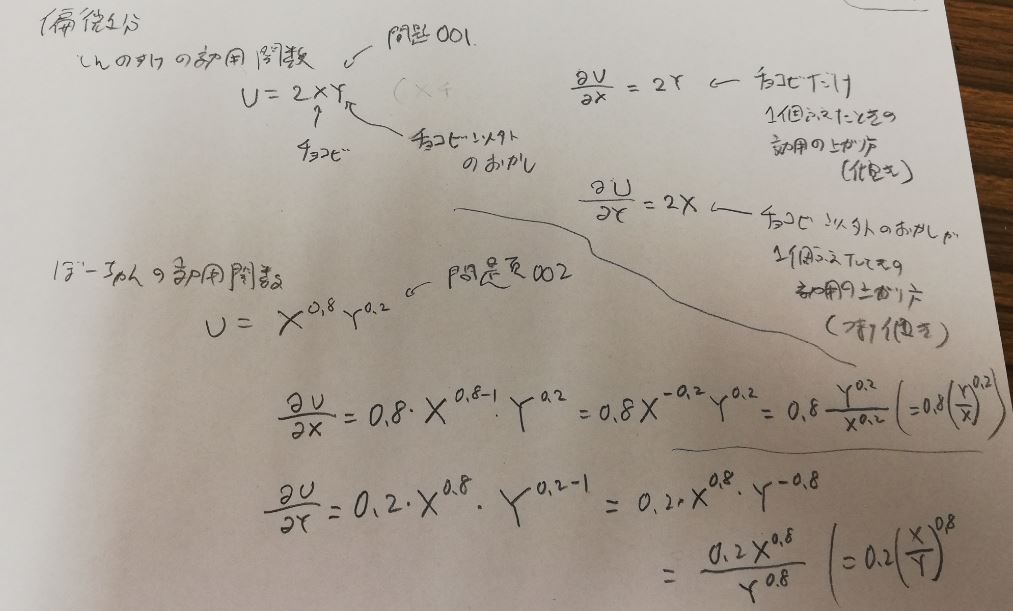 偏微分
しんのすけの効用関数
問題001.
U = 2XY
チョコビ
チョコビ以外
のおかし
∂U/∂X = 2Y ← チョコビだけ
1個ふえたときの
効用の上がり方
(傾き)
∂U/∂Y = 2X ← チョコビ以外のおかしが
1個ふえたときの
効用の上がり方
(つまり傾き)
ぼーちゃんの効用関数
問題002
U = X^0.8 Y^0.2
∂U/∂X = 0.8・X^0.8-1・Y^0.2 = 0.8X^-0.2 Y^0.2 = 0.8 Y^0.2/X^0.2 (=0.8(Y/X)^0.2)
∂U/∂Y = 0.2・X^0.8・Y^0.2-1 = 0.2・X^0.8・Y^-0.8
= 0.2X^0.8/Y^0.8 (=0.2(X/Y)^0.8